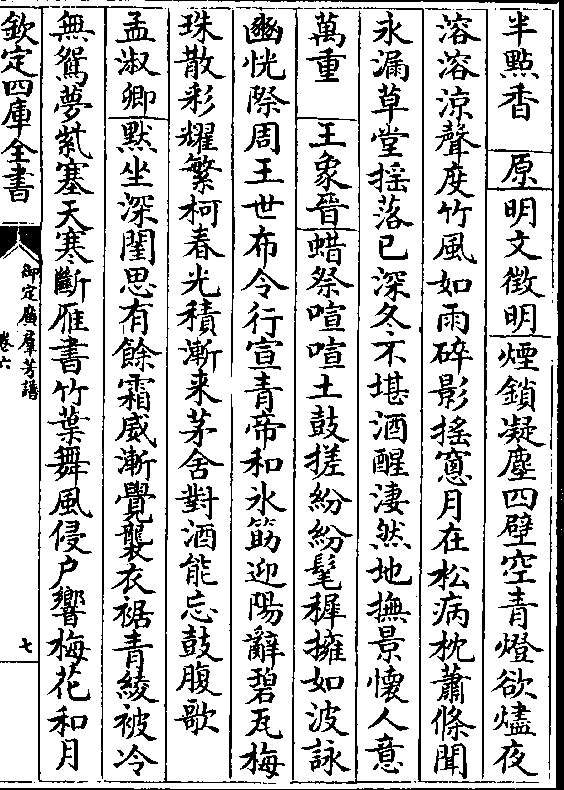 半點香　原　明文徵明　煙鎖凝塵四壁空青燈欲燼夜
溶溶涼聲度竹風如雨碎影搖窻月在松病枕蕭條聞
永漏草堂揺落已深冬不堪酒醒淒然地撫景懷人意
萬重　王象晉　蜡祭喧喧土鼓搓紛紛髦穉擁如波詠
豳恍際周王世布令行宣青帝和氷筯迎陽辭碧瓦梅
珠散彩耀繁柯春光積漸来茅舍對酒能忘鼓腹歌
孟淑卿　黙坐深閨思有餘霜威漸覺襲衣裾青綾被冷
無鴛夢紫塞天寒斷雁書竹葉舞風侵户響梅花和月
欽定四庫全書　御定廣羣芳譜　卷六　七